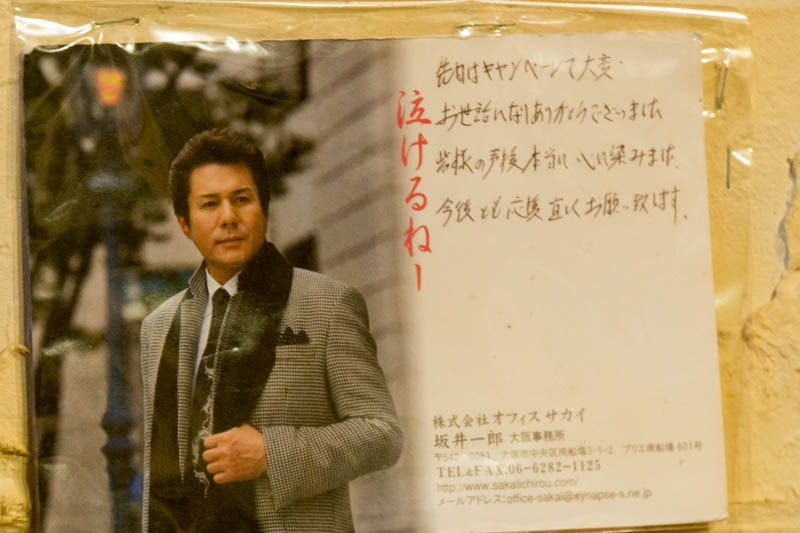 泣けるねー
先日はキャンペーンで大変
お世話になりありがとうございました
皆様の声援本当に心に染みました
今後とも応援宜しくお願い致します。
株式会社オフィスサカイ
坂井一郎 大阪事務所
〒542-0081 大阪市中央区南船場3-1-2 プリエ南船場 601号
TEL&FAX.06-6282-1125
http://www.sakaiichirou.com/
メールアドレス:office-sakai@synapse-s.ne.jp